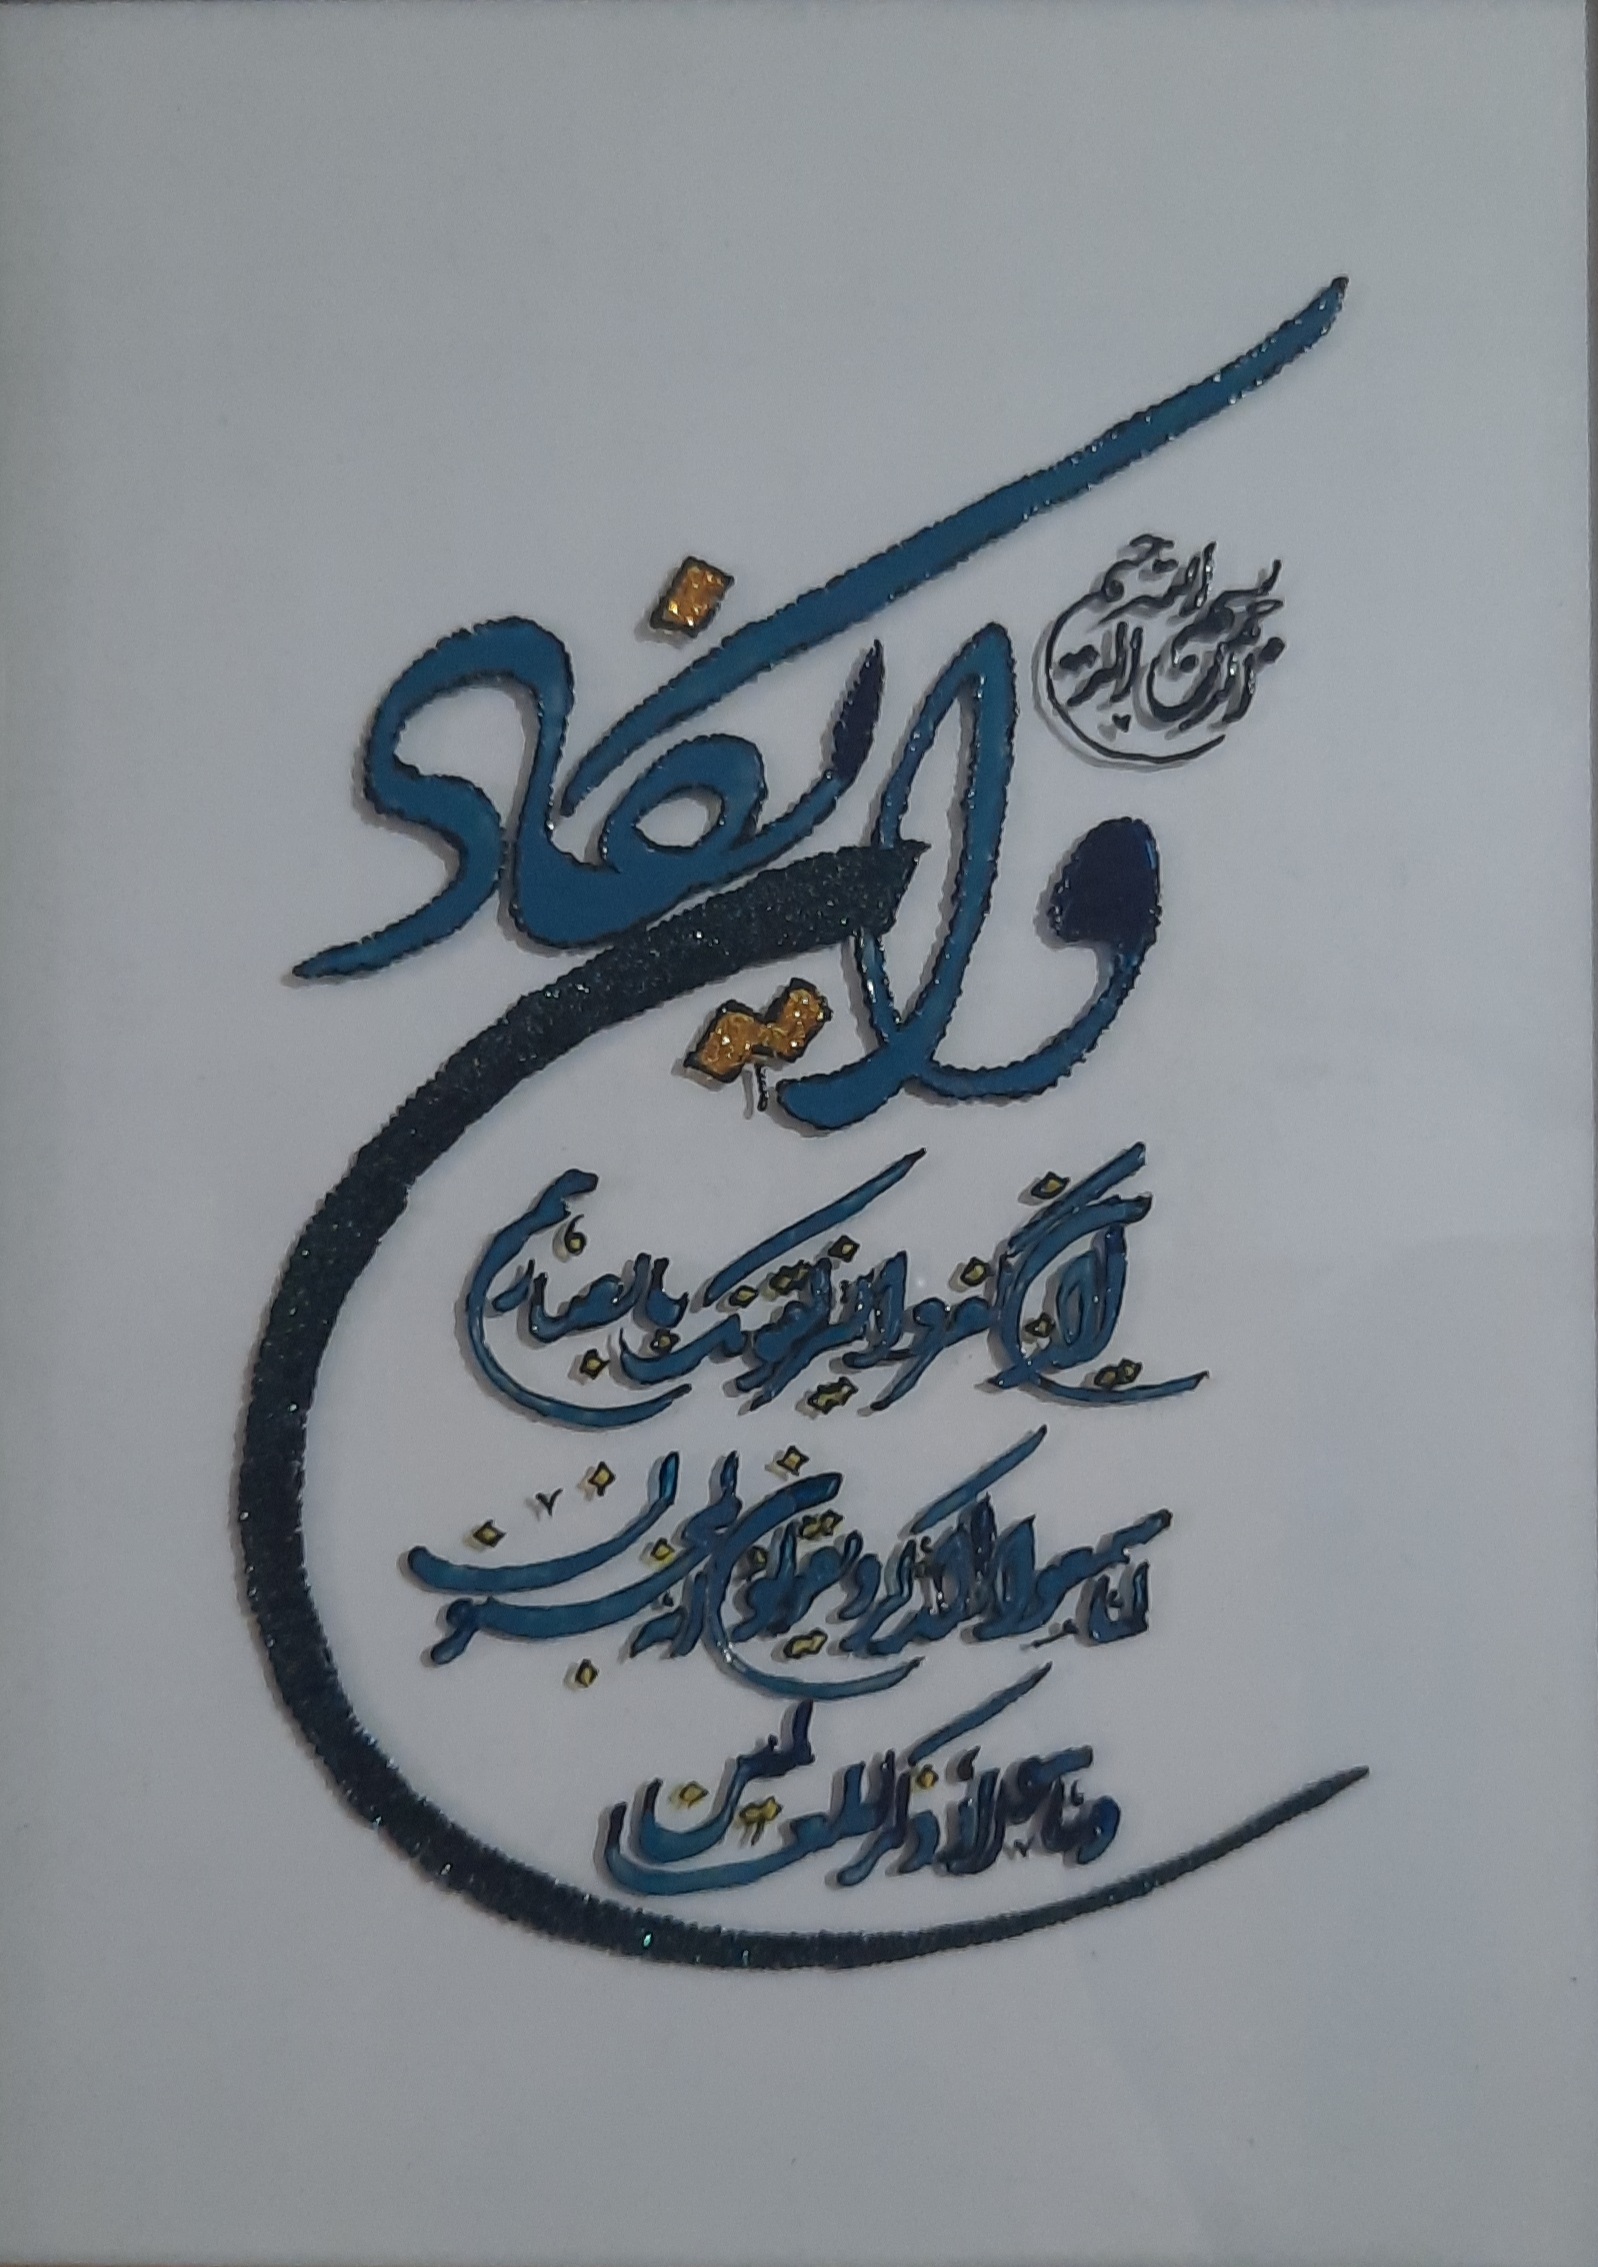 بسم الله الرحمن الرحیم
وان یکاد
الذین کفروا لیزلقونک بابصارهم
لما سمعوا الذکر و یقولون انه لمجنون
و ما هو الا ذکر للعالمین